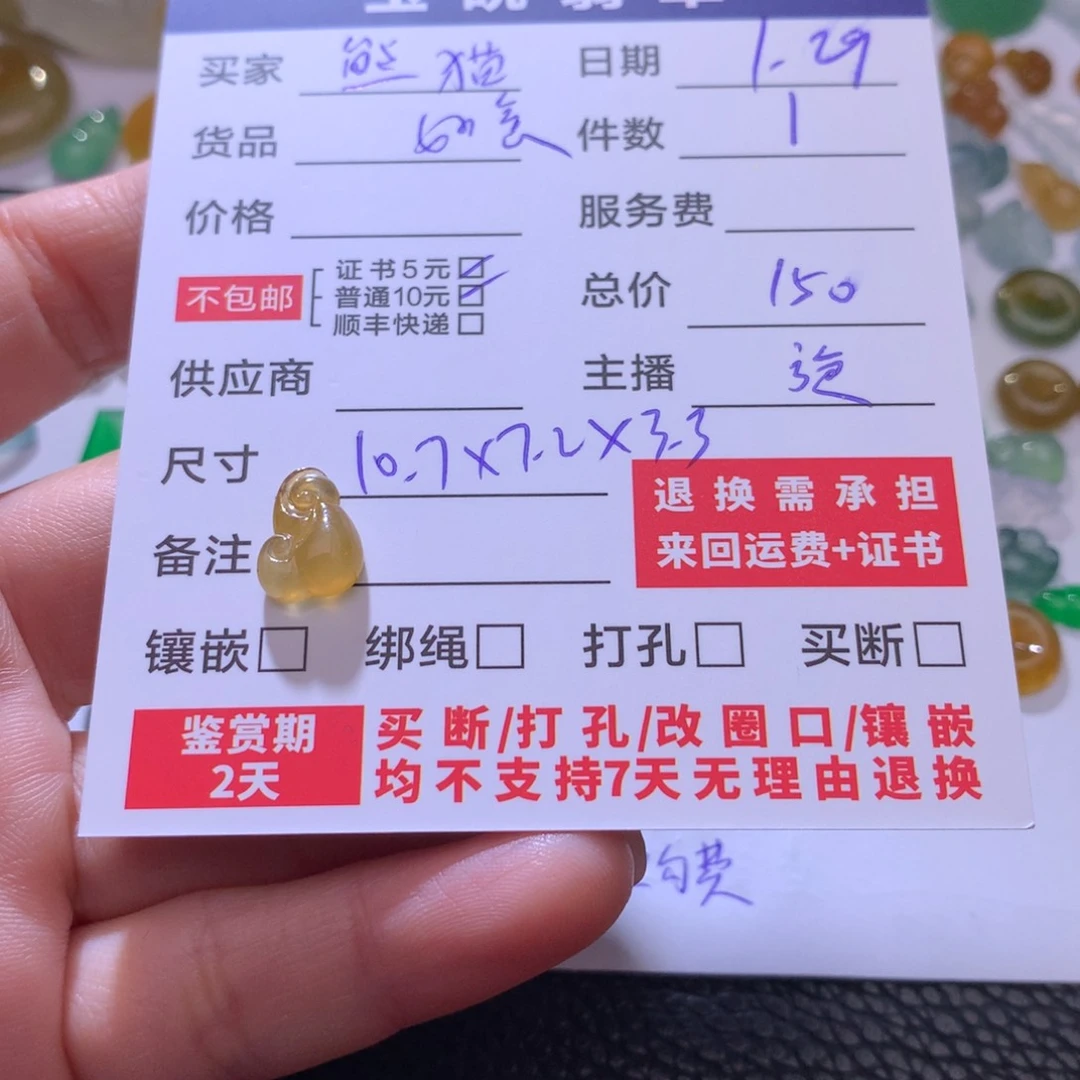 买家 熊猫 日期 1.29
货品 如意 件数 1
价格 服务费
不包邮 证书5元 普通10元 顺丰快递
总价 150
供应商 主播
尺寸 10.7×7.2×3.3
退换需承担
来回运费+证书
备注
镶嵌 绑绳 打孔 买断
鉴赏期 2天
买断/打孔/改圈口/镶嵌
均不支持7天无理由退换